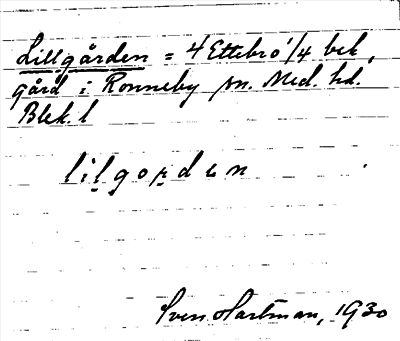 Lillgården = 4 Ettebro 1/4 bek,
gård i Ronneby sn. Med. hd.
Blek. l
lilgordɘn
Sven Hartman, 1930